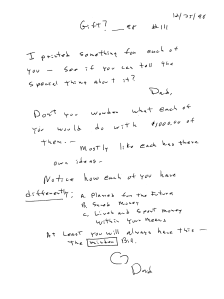 12/25/98
Gift? __ 98 #111
I printed something for each of
you — see if you can tell the
special thing about it?
Dad,
Don't you wonder what each of
you would do with
them. —
Mostly like each has there
own ideas —
Notice how each of you have
differently; a Planed for the future
B. Saved Money
C. Lived and Spent money
within your means
At Least you will always have this —
The Bill.
Dad